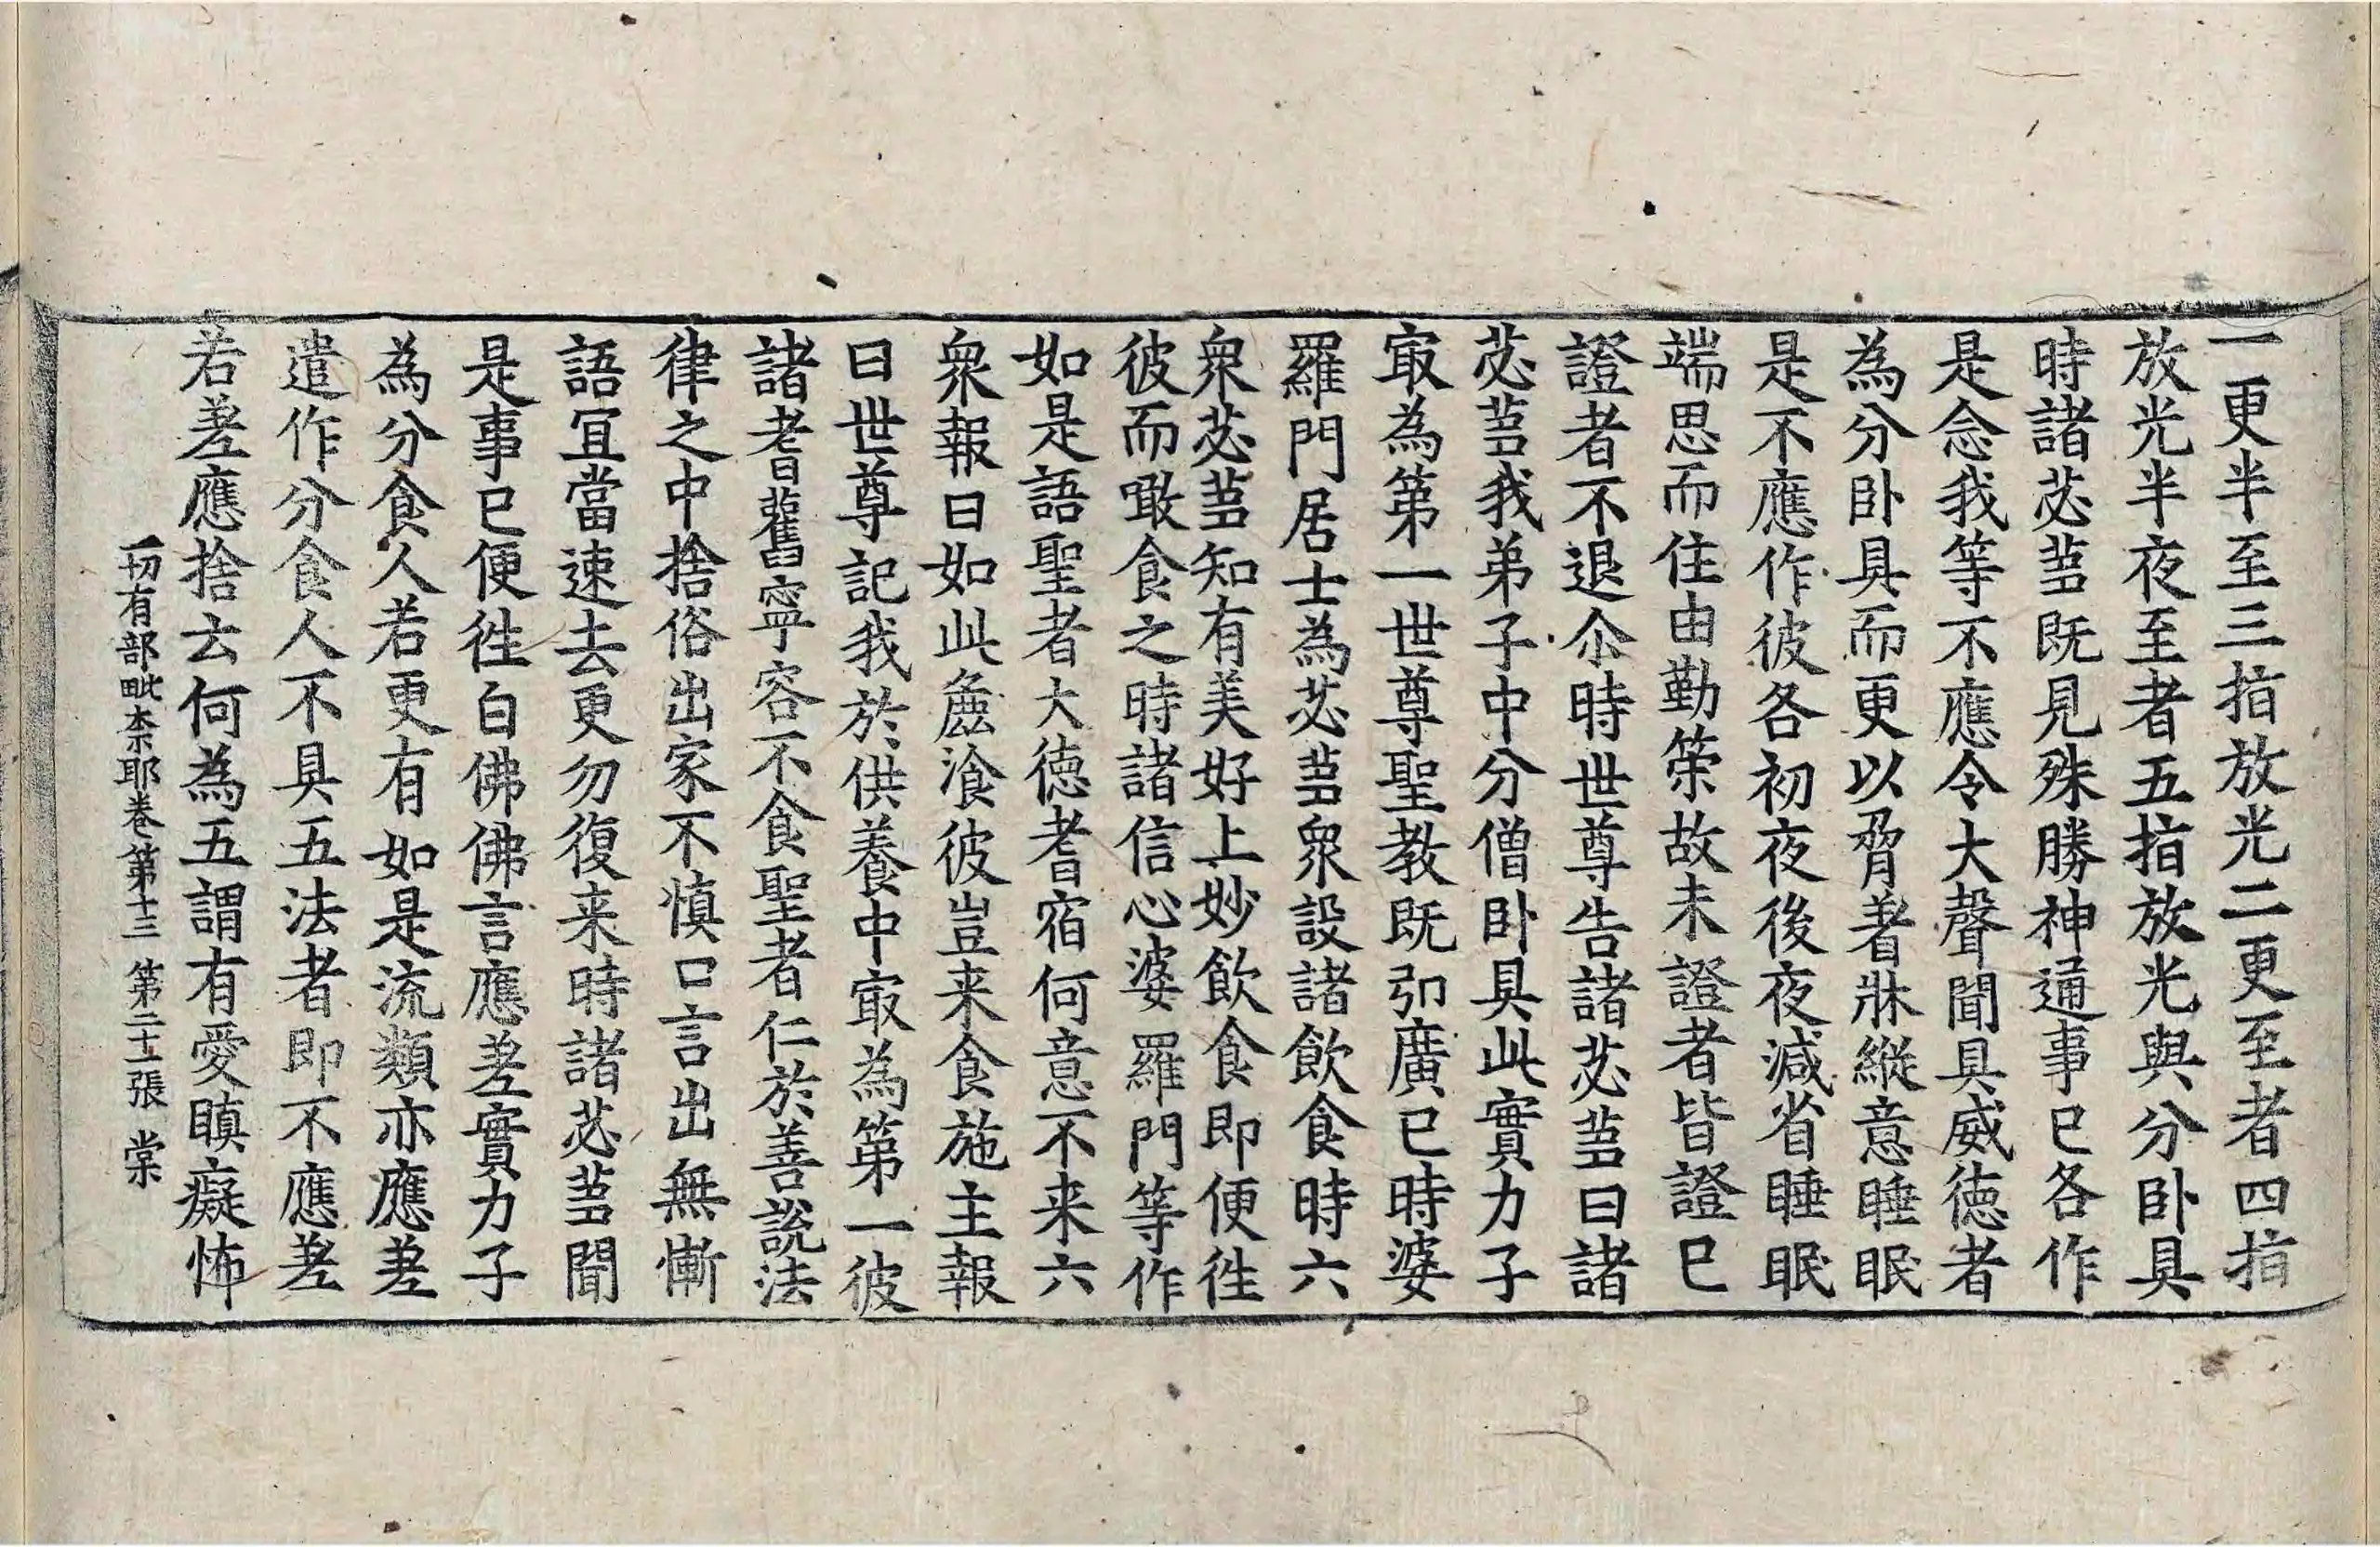 一更半至三指放光二更至者四指
放光半夜至者五指放光與分卧具
時諸苾蒭既見殊勝神通事已各作
是念我等不應令大聲聞具威徳者
為分卧具而更以脅著牀縱意睡眠
是不應作彼各初夜後夜減省睡眠
端思而住由勤策故未證者皆證已
證者不退尒時世尊告諸苾蒭曰諸
苾蒭我弟子中分僧卧具此實力子
㝡為第一世尊聖教既引廣已時婆
羅門居士為苾蒭衆設諸飲食時六
衆苾蒭知有美好上妙飲食即便徃
彼而噉食之時諸信心婆羅門等作
如是語聖者大徳耆宿何意不来六
衆報曰如此麁湌彼豈来食施主報
曰世尊記我於供養中㝡為第一彼
諸耆舊寧容不食聖者仁於善說法
律之中捨俗出家不慎口言出無慚
語冝當速去更勿復来時諸苾蒭聞
是事已便徃白佛佛言應差實力子
為分食人若更有如是流類亦應差
遣作分食人不具五法者即不應差
若差應捨云何為五謂有愛瞋癡怖
一切有部毗柰耶卷第十三 第二十一張 棠